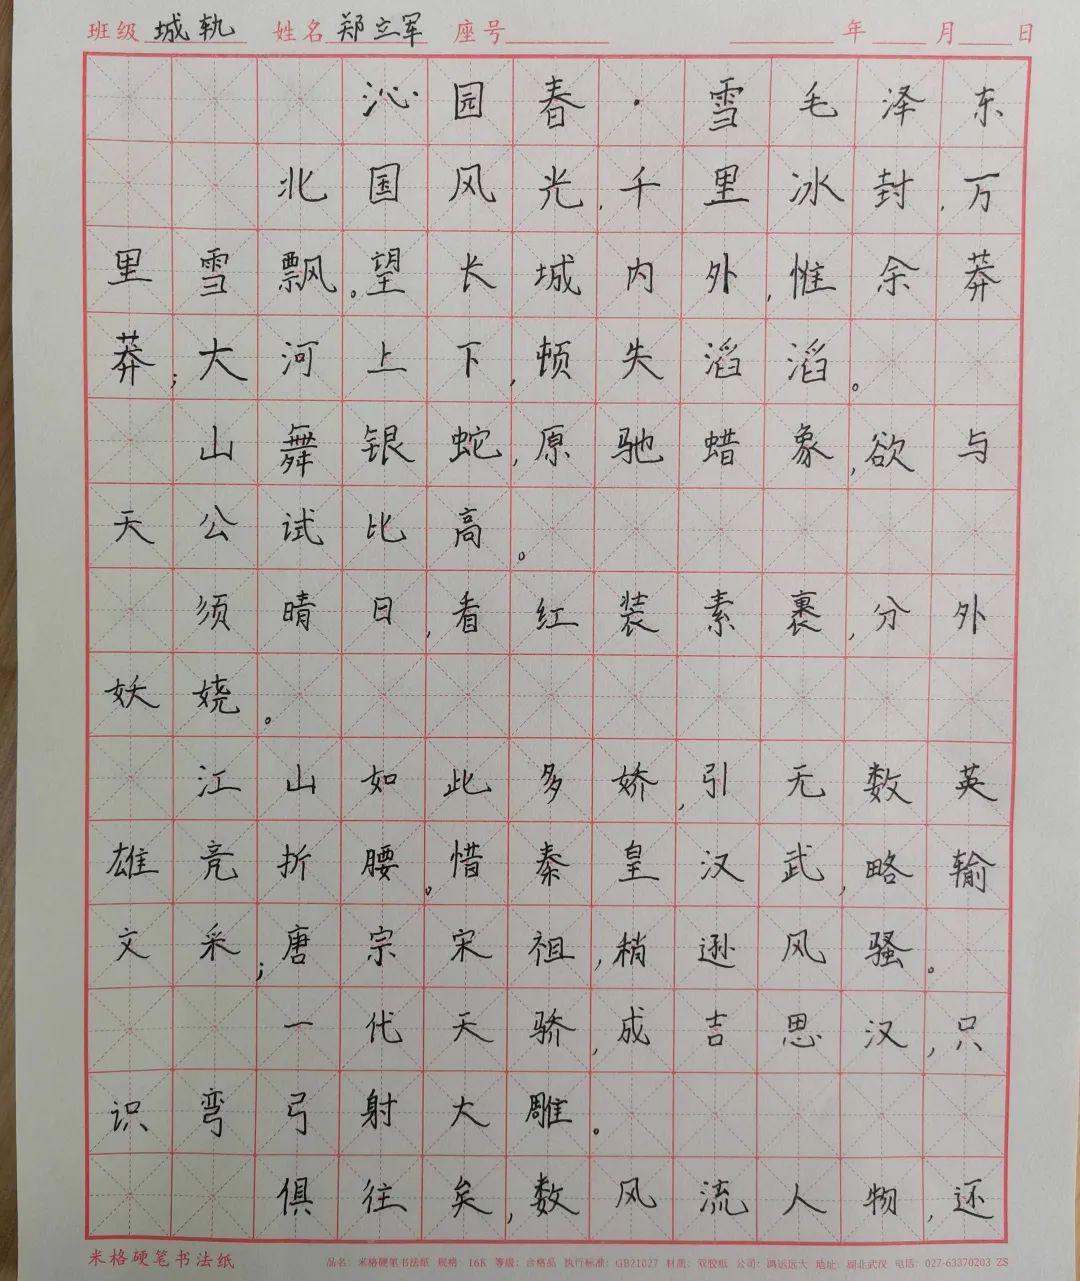 班级 城轨 姓名 郑立军 座号 年 月 日
沁园春·雪 毛泽东
北国风光,千里冰封,万
里雪飘。望长城内外,惟余莽
莽;大河上下,顿失滔滔。
山舞银蛇,原驰蜡象,欲与
天公试比高。
须晴日,看红装素裹,分外
妖娆。
江山如此多娇,引无数英
雄竞折腰。惜秦皇汉武,略输
文采;唐宗宋祖,稍逊风骚。
一代天骄,成吉思汉,只
识弯弓射大雕。
俱往矣,数风流人物,还
米格硬笔书法纸 品名：米格硬笔书法纸 规格：16K 等级：合格品 执行标准：GB21027 材质：双胶纸 公司：鸿运远大 地址：湖北武汉 电话：027-63370203 ZS